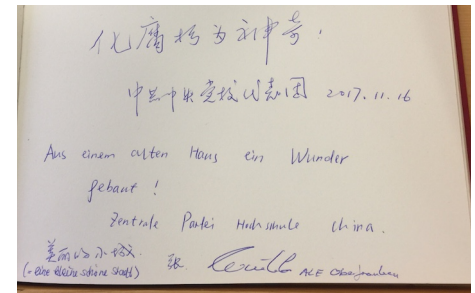 化腐朽为神奇！
中共中央党校代表团 2017.11.16
Aus einem alten Haus ein Wunder
gebaut !
Zentrale Partei Hochschule China.
美丽的小城
(=eine kleine schöne Stadt) 张 ALE